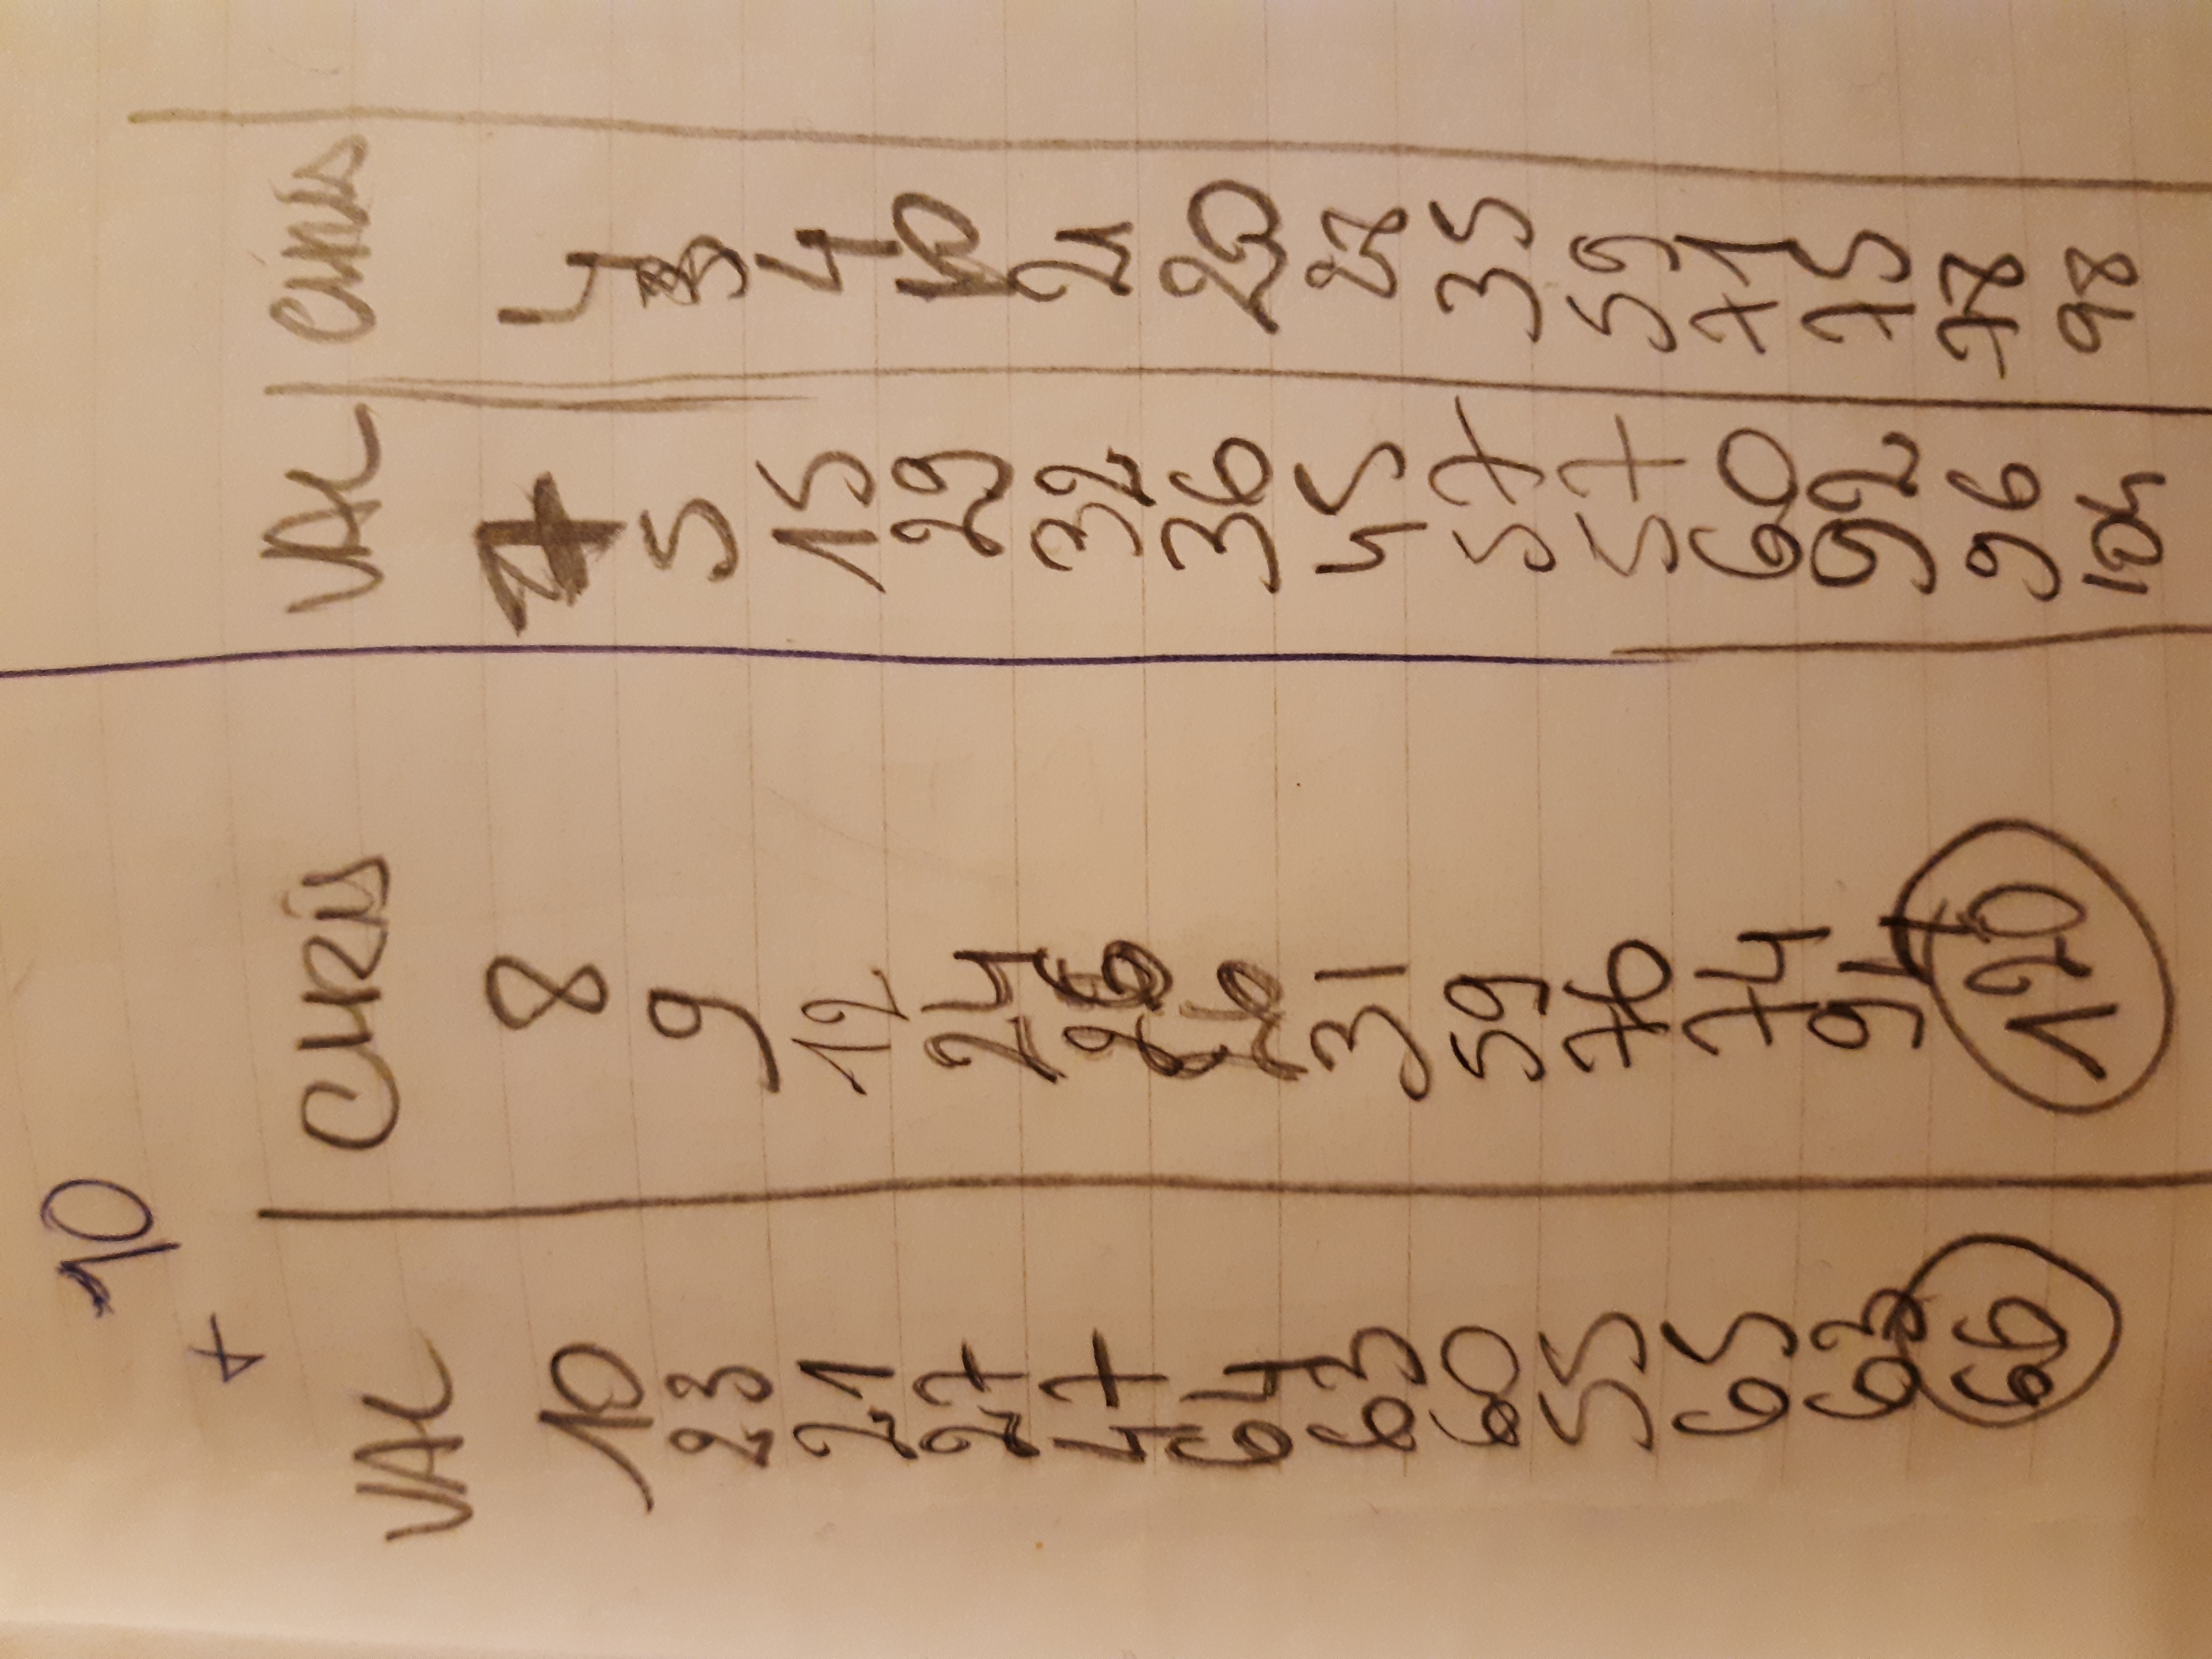 10
+
VAL CHRIS VAL CHRIS
10 8 7 4
23 9 5
21 12 15 4
27 24 29
47 32 21
64 36
63 31 45 28
60 59 57 35
55 70 57 59
65 74 60 71
63 94 92 75
66 120 96 78
104 98